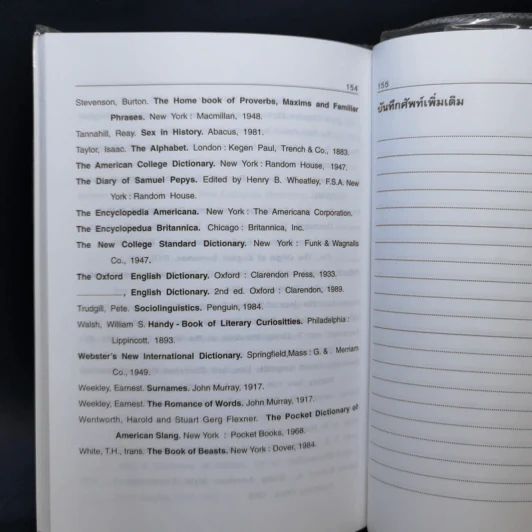 154
Stevenson, Burton. The Home book of Proverbs, Maxims and Familiar
Phrases. New York : Macmillan, 1948.
Tannahill, Reay. Sex in History. Abacus, 1981.
Taylor, Isaac. The Alphabet. London : Kegen Paul, Trench & Co., 1883.
The American College Dictionary. New York : Random House, 1947.
The Diary of Samuel Pepys. Edited by Henry B. Wheatley, F.S.A. New
York : Random House.
The Encyclopedia Americana. New York : The Americana Corporation.
The Encyclopedua Britannica. Chicago : Britannica, Inc.
The New College Standard Dictionary. New York : Funk & Wagnalls
Co., 1947.
The Oxford English Dictionary. Oxford : Clarendon Press, 1933.
________, English Dictionary. 2nd ed. Oxford : Clarendon, 1989.
Trudgill, Pete. Sociolinguistics. Penguin, 1984.
Walsh, William S. Handy - Book of Literary Curiositties. Philadelphia :
Lippincott, 1893.
Webster's New International Dictionary. Springfield,Mass : G. & . Merriam
Co., 1949.
Weekley, Earnest. Surnames. John Murray, 1917.
Weekley, Earnest. The Romance of Words. John Murray, 1917.
Wentworth, Harold and Stuart Gerg Flexner. The Pocket Dictionary of
American Slang. New York : Pocket Books, 1968.
White, T.H., trans. The Book of Beasts. New York : Dover, 1984.
155
บันทึกศัพท์เพิ่มเติม